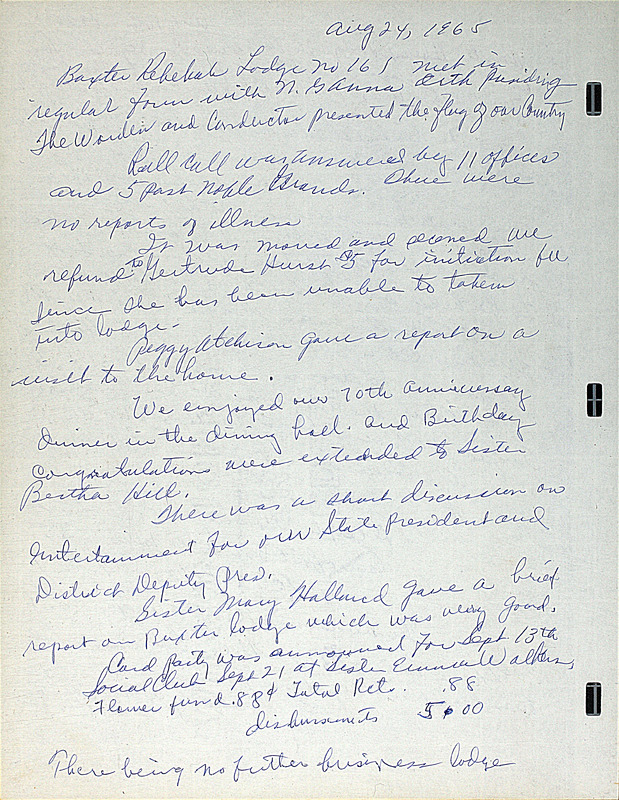 Aug 24, 1965
Baxter Rebekah Lodge no 161 met in
regular form with N. G Anna Orth presiding
The Warden and Conductor presented the flag of our Country
Roll call was answered by 11 offices
and 5 past Noble Grands. There were
no reports of illness
It was moved and seconed we
refund to Gertrude Hurst $5 for initiation fee
since she has been unable to taken
into lodge.
Peggy Atchison gave a report on a
visit to the home.
We enjoyed our 70th anniversary
dinner in the dining hall. and Birthday
Congratulations were extended to Sister
Bertha Hill.
There was a short discussion on
Entertainment for our State President and
District Deputy Pres.
Sister Mary gave a brief
report on Baxter lodge which was very good.
Card Party was announced for Sept 13th
Social Club Sept 21 at Sister Emma Walkers,
Flower fund .88¢ Total Rets. .88
disbursments 5 00
There being no further business lodge